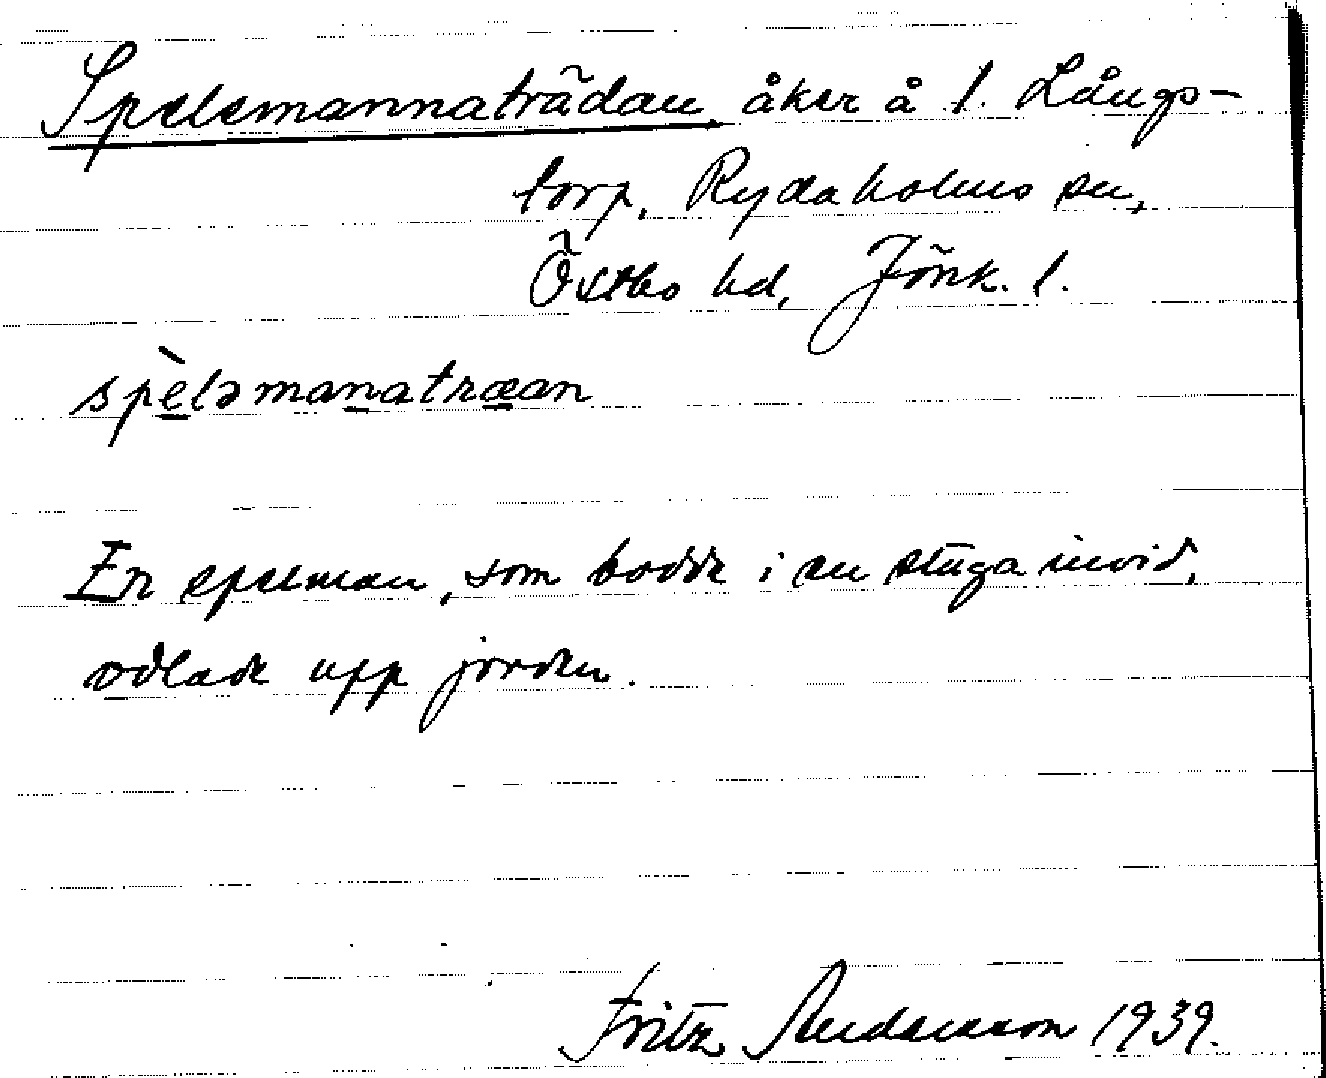 Spelemannaträdan, åker å l. Långs-
torp, Rydaholms sn,
Östbo hd, Jönk. l.
spèləmanatræan
En spelman, som bodde i en stuga invid,
odlade upp jorden.
Fritz Andersson 1939.